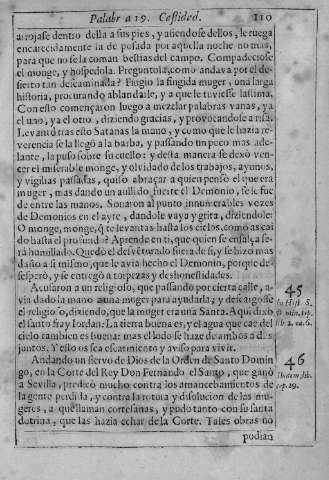 Palabra 19. Castidad. 110
arrojase dentro della a sus pies, y asiendose dellos, le ruega
encarecidamente la de posada por aquella noche no mas,
para que no se la coman bestias del campo. Compadeciose
el monge, y hospedola. Preguntola, como andava por el de-
sierto tan descaminada? Fingio la fingida muger, una larga
historia, procurando ablandarle, y a que le tuviesse lastima.
Con esto començaron luego a mezclar palabras vanas, ya
el uno, ya el otro, diziendo gracias, y provocandole a risa.
Levantó tras esto Satanas la mano, y como que le hazia re-
verencia se la llegò a la barba, y passando un poco mas ade-
lante, la puso sobre su cuello: y desta manera se dexò ven-
cer el miserable monge, y olvidado de los trabajos, ayunos,
y vigilias passadas, quiso abraçar a quien pensò el que era
muger, mas dando un aullido fuerte el Demonio, se le fue
de entre las manos. Sonaron al punto innumerables vozes
de Demonios en el ayre, dandole vaya y grita, diziendole:
O monge, monge, q̃ te levantas hasta los cielos, como as cai
do hasta el profundo? Aprende en ti, que quien se ensalça se
rá humillado. Quedò el desventurado fuera de si, y se hizo mas
daño a si mismo, que le avia hecho el Demonio, porque de-
sesperò, y se entregò a torpezas y deshonestidades.
Acusaron a un religioso, que passando por cierta calle, a-
via dado la mano a una muger para ayudarla; y descargose
el religioso, diziendo, que la muger era una Santa. Aqui dixo
el santo fray Iordan: La tierra buena es, y el agua que cae del
cielo tambien es buena: mas el lodo se haze de ambos a dos
juntos. Y esto os sea escarmiento y aviso para vivir.
45
In Hist. S.
lib 2. ca. 6.
Andando un siervo de Dios de la Orden de Santo Domin
go, en la Corte del Rey Don Fernando el Santo, que ganò
a Sevilla, predicò mucho contra los amancebamientos de
la gente perdida, y contra la rotura y disolucion de las mu-
geres, a que llaman cortesanas, y pudo tanto con su santa
dotrina, que las hazia echar de la Corte. Tales obras no
46
Ibidem, lib.
cap. 29.
podian